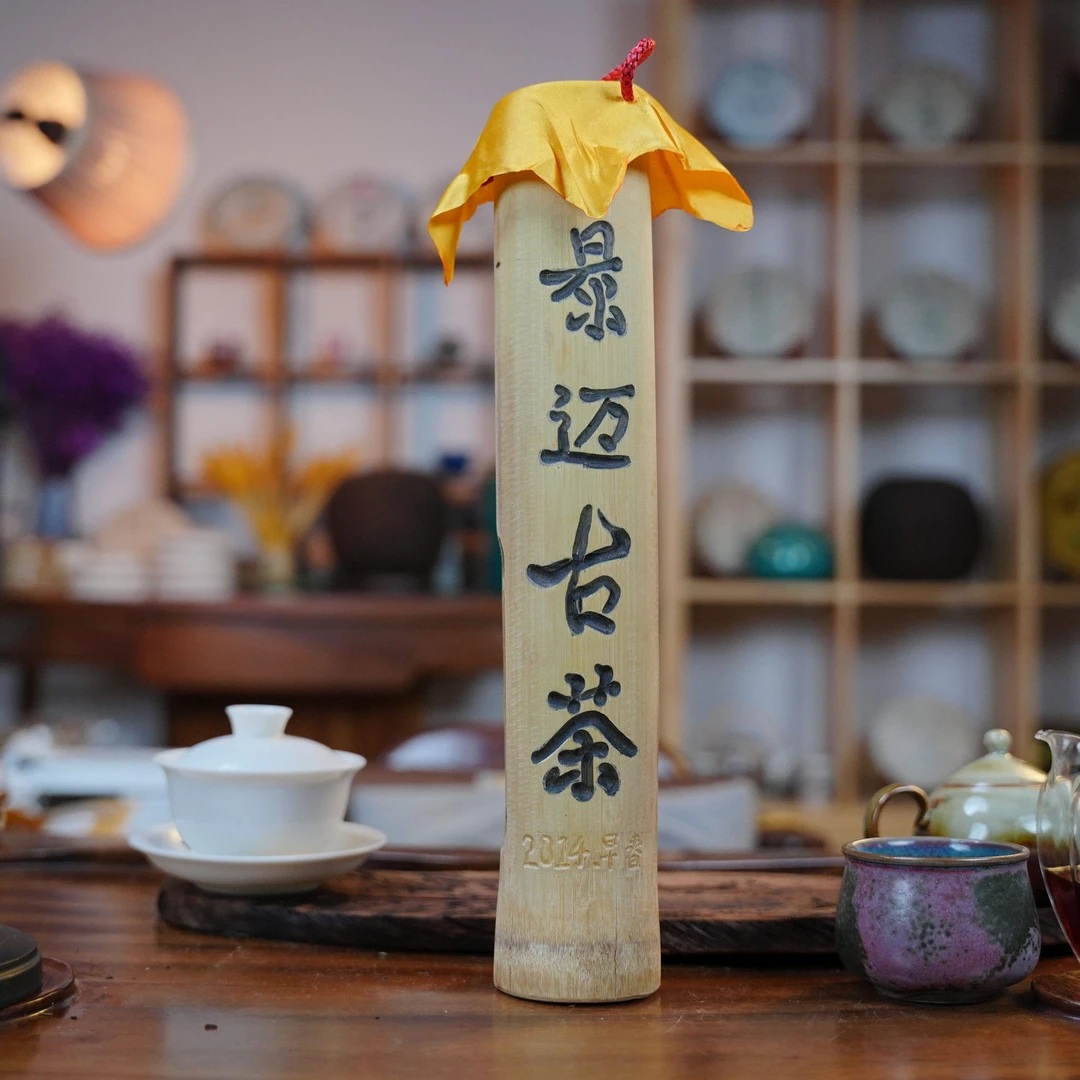 景迈古茶
2014.早春